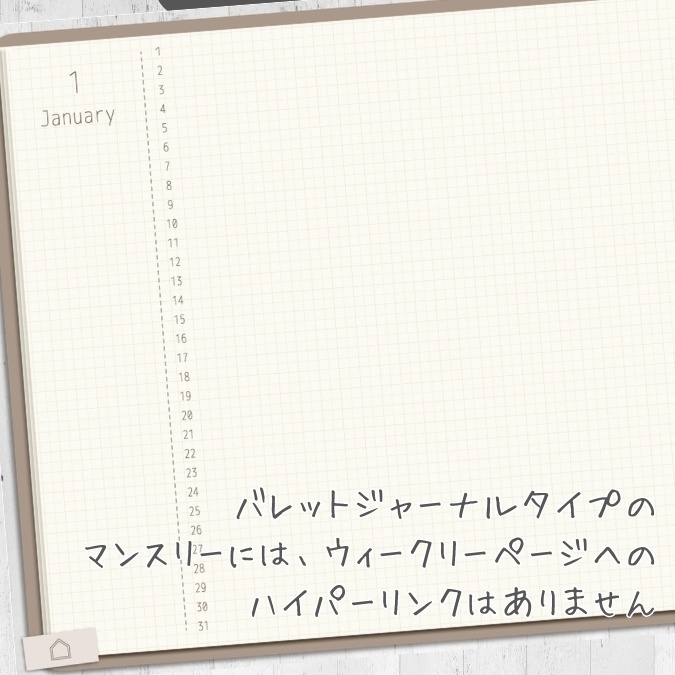 1
January
1
2
3
4
5
6
7
8
9
10
11
12
13
14
15
16
17
18
19
20
21
22
23
24
25
26
27
28
29
30
31
バレットジャーナルタイプの
マンスリーには、ウィークリーページへの
ハイパーリンクはありません